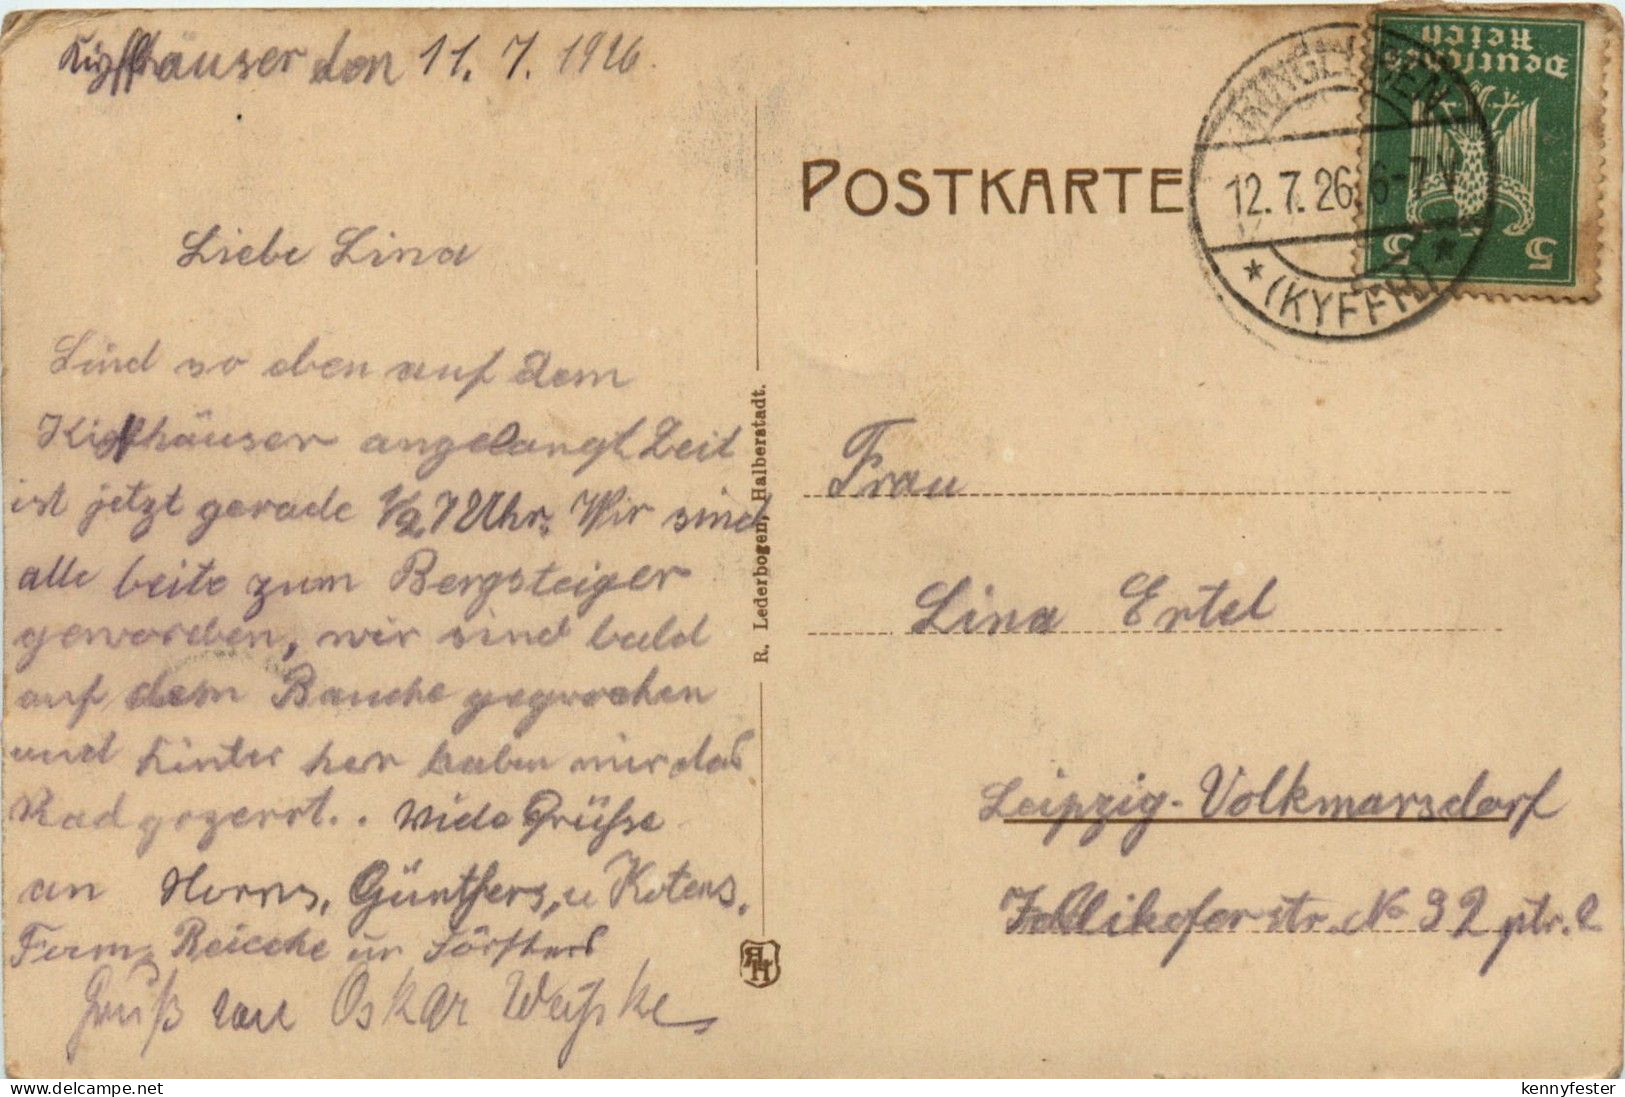 Kipffhäuser den 11. 7. 1926.
Liebe Lina
Sind so eben auf dem
Kipffhäuser angelangt Zeit
ist jetzt gerade 1/2 7 Uhr. Wir sind
alle beite zum Bergsteiger
geworden, wir sind bald
auf dem Bauche gegrochen
und hinter her haben wir das
Rad gezerrt.. Wide Grüsse
an Horns, Günthers, u Koters,
Fam.
Gruß von Oskar
R. Lederbogen, Halberstadt.
RLH
POSTKARTE
Deutsches
Reich
5 5
RINGLEBEN
12.7.26 6-7 V
* (KYFFH) *
Frau
Lina Ertel
Leipzig-Volkmarsdorf
Zollikoferstr. No 32 ptr. l
kennyfester